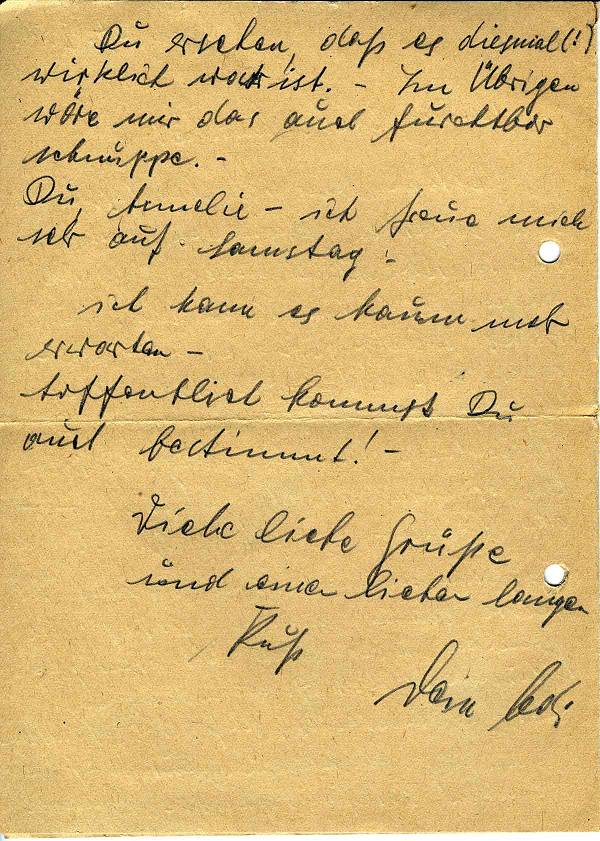 Du ersehen, daß es diesmal(!)
wirklich wahr ist. - Im Übrigen
wäre mir das auch furchtbar
schnuppe. -
Du, Annelie - ich freue mich
sehr auf Samstag!
ich kann es kaum mehr
erwarten -
Hoffentlich kommst Du
auch bestimmt! -
Viele liebe Grüße
und einen lieben langen
Kuß
Dein